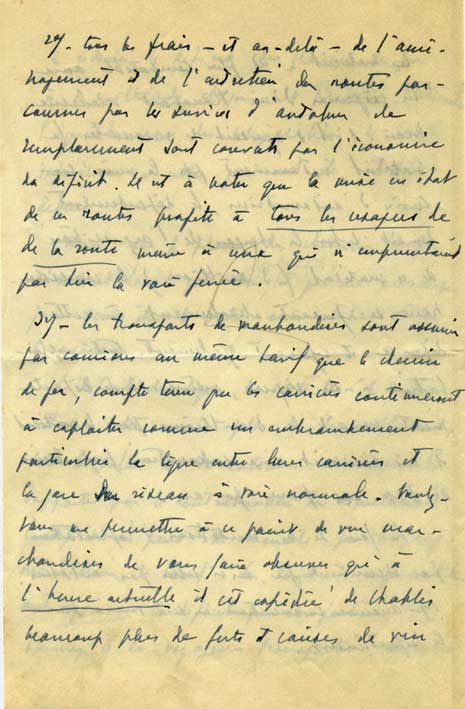 2°/- tous les frais - et au-delà - de l'amé-
nagement et de l'entretien des routes par-
courues par les services d'autobus de
remplacement sont couverts par l'économie
du déficit. Il est à noter que la mise en état
de ces routes profite à tous les usagers de
de la route même à ceux qui n'empruntaient
pas hier la voie ferrée.
3°/- les transports de marchandises sont assurés
par camions au même tarif que le chemin
de fer, compte tenu que les carriers continueront
à exploiter comme un embranchement
particulier la ligne entre leurs carrières et
la gare du réseau à voie normale. Voulez-
vous me permettre à ce point de vue mar-
chandises de vous faire observer qu'à
l'heure actuelle il est expédié de Chablis
beaucoup plus de fûts et caisses de vin